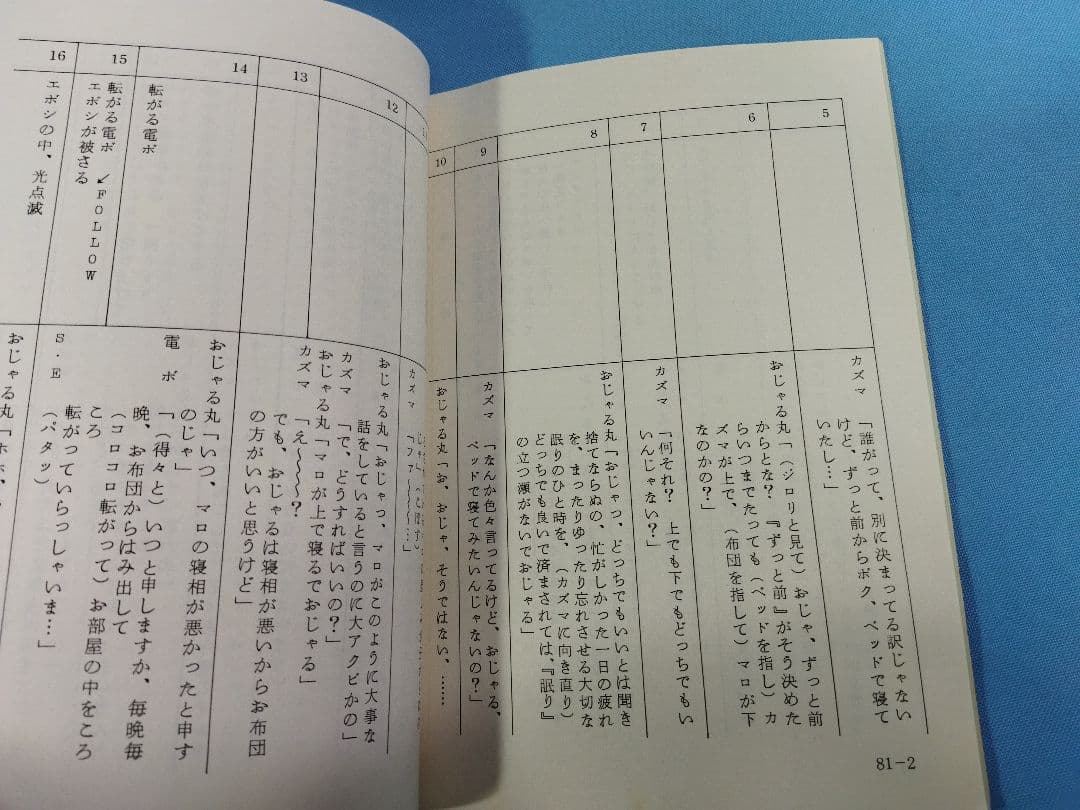 5
カズマ「誰がって、別に決まってる訳じゃない
けど、ずっと前からボク、ベッドで寝て
いたし…」
6
おじゃる丸「（ジロリと見て）おじゃ、ずっと前
からとな？『ずっと前』がそう決めた
らいつまでたっても（ベッドを指し）カ
ズマが上で、（布団を指して）マロが下
なのかの？」
7
カズマ「何それ？ 上でも下でもどっちでもい
いんじゃない？」
8
おじゃる丸「おじゃっ、どっちでもいいとは聞き
捨てならぬの、忙がしかった一日の疲れ
を、まったりゆったり忘れさせる大切な
眠りのひと時を、（カズマに向き直り）
どっちでも良いで済まされては、『眠り』
の立つ瀬がないでおじゃる」
9
カズマ「なんか色々言ってるけど、おじゃる、
ベッドで寝てみたいんじゃないの？」
10
おじゃる丸「お、おじゃ、そうではない、……
81-2
カズマ「ファ～～～…」
12
おじゃる丸「おじゃっ、マロがこのように大事な
話をしていると言うのに大アクビかの」
カズマ「で、どうすればいいの？」
おじゃる丸「マロが上で寝るでおじゃる」
カズマ「え～～～？
13
でも、おじゃるは寝相が悪いからお布団
の方がいいと思うけど」
14
転がる電ボ
おじゃる丸「いつ、マロの寝相が悪かったと申す
のじゃ」
電ボ「（得々と）いつと申しますか、毎晩毎
晩、お布団からはみ出して
（コロコロ転がって）お部屋の中をころ
ころ
15
転がる電ボ ↙FOLLOW
エボシが被さる
転がっていらっしゃいま…」
S．E（パタッ）
16
エボシの中、光点滅
おじゃる丸「ホホ、